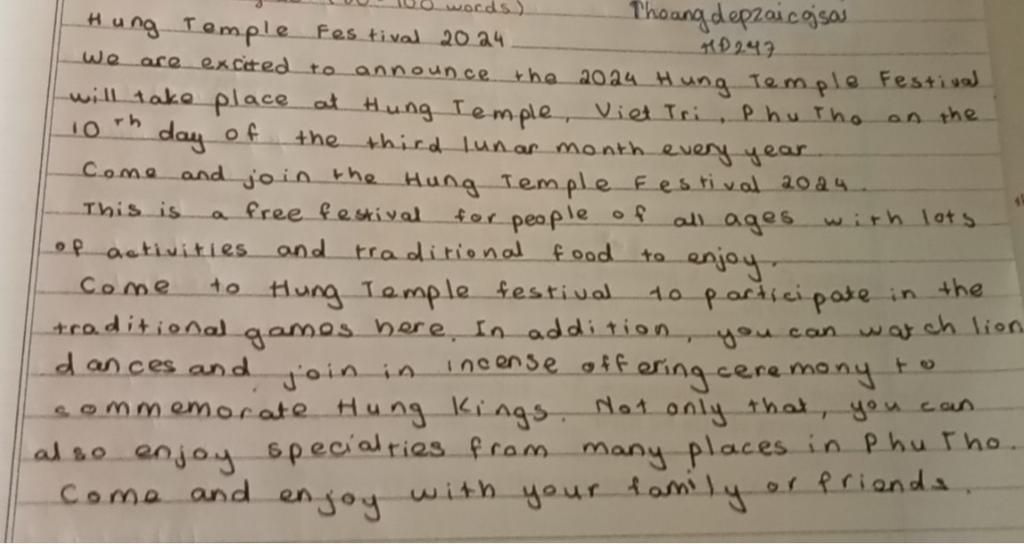 100 words)
Phoangdepzaicojsas
Hung Temple Festival 2024
HD247
We are excited to announce the 2024 Hung Temple Festival
will take place at Hung Temple, Viet Tri, Phu Tho on the
10th day of the third lunar month every year.
Come and join the Hung Temple Festival 2024.
This is a free festival for people of all ages with lots
of activities and traditional food to enjoy.
Come to Hung Temple festival to participate in the
traditional games here. In addition, you can watch lion
dances and join in incense offering ceremony to
commemorate Hung Kings. Not only that, you can
also enjoy specialties from many places in Phu Tho.
Come and enjoy with your family or friends.